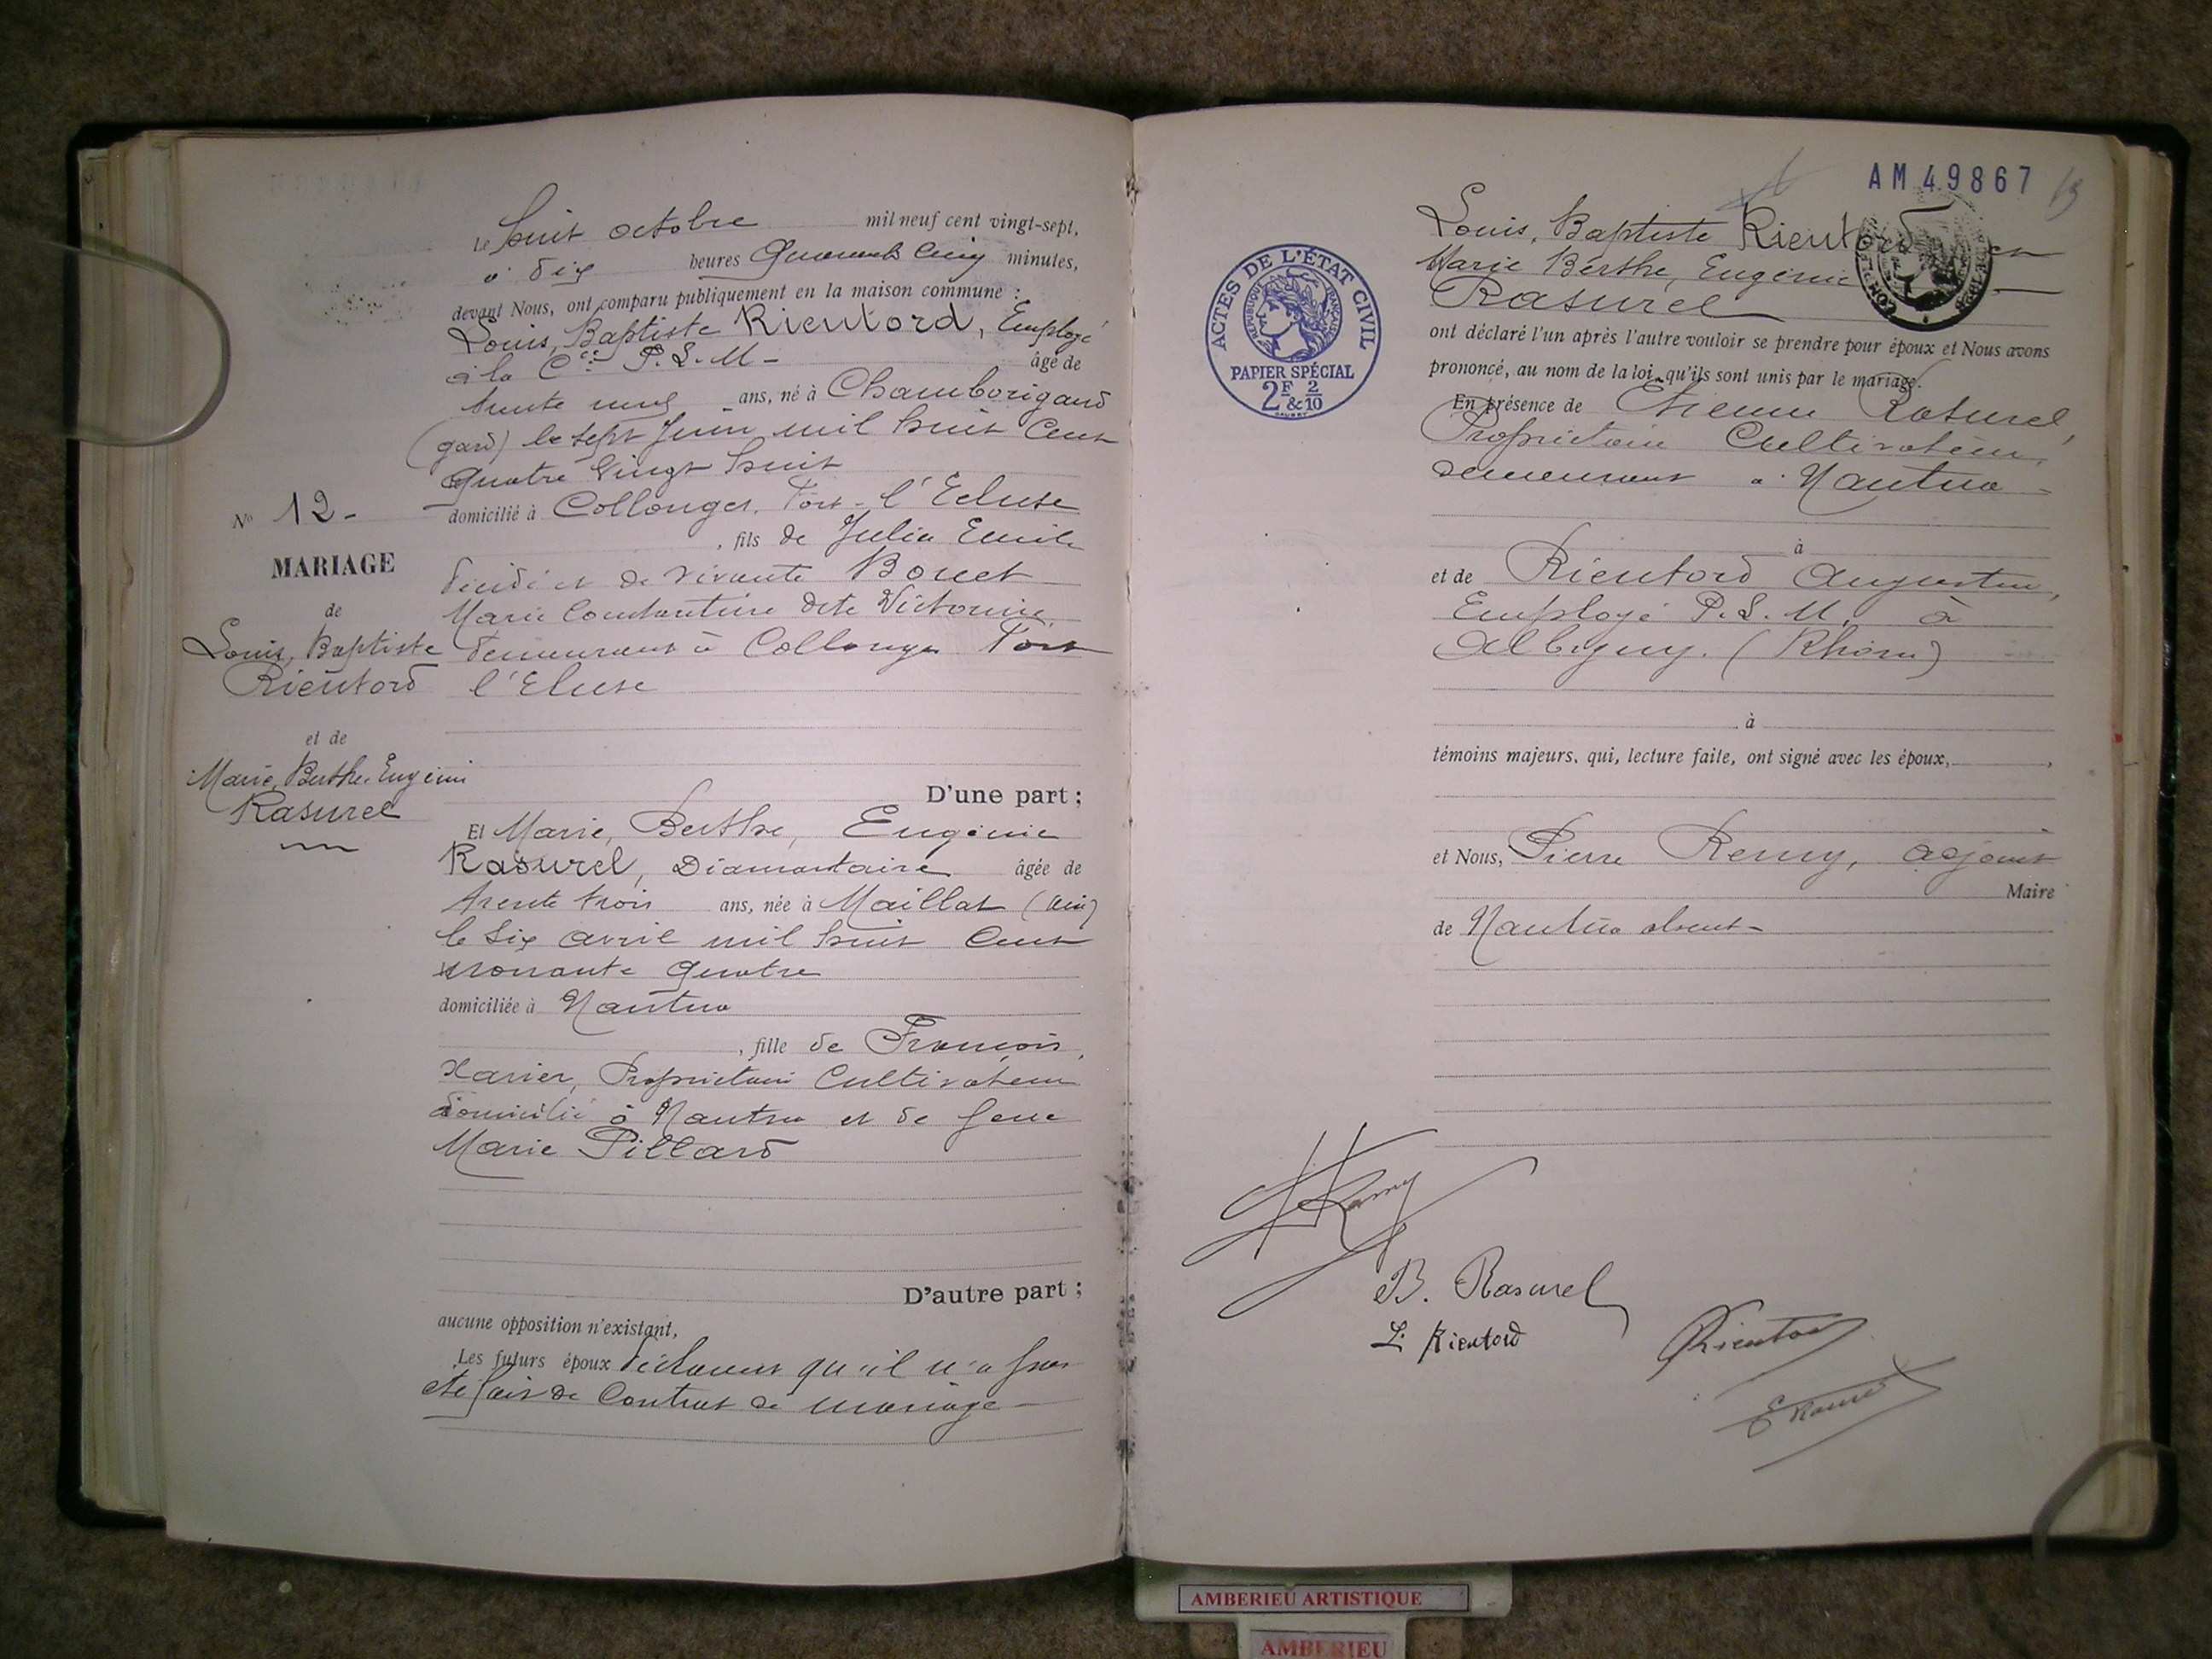 Le huit octobre mil neuf cent vingt-sept,
à dix heures Quarante Cinq minutes,
devant Nous, ont comparu publiquement en la maison commune :
Louis, Baptiste Rieutord, Employé
à la Cie P.L.M - âgé de
trente neuf ans, né à Chamborigaud
(gard) le sept Juin mil huit Cent
quatre Vingt huit
domicilié à Collonges. Fort-l'Ecluse
, fils de Julien Emile
décédé et de vivante Bouet
Marie Constantine dite Victorine
demeurant à Collonges Fort
l'Eluse
D'une part ;
Et Marie, Berthe, Eugénie
Rasurel, Diamantaire âgée de
trente trois ans, née à Maillat (Ain)
le six avril mil huit Cent
nonante quatre
domiciliée à Nantua
, fille de François,
Xavier, Propriétaire Cultivateur
domicilié à Nantua et de feue
Marie Pillard
D'autre part ;
aucune opposition n'existant,
Les futurs époux déclarent qu'il n'a pas
été fait de Contrat de mariage
No 12-
MARIAGE
de
Louis, Baptiste
Rieutord
et de
Marie, Berthe, Eugénie
Rasurel
AM 49867
ACTES DE L'ÉTAT CIVIL
RÉPUBLIQUE FRANÇAISE
PAPIER SPÉCIAL
2F & 2/10
Louis, Baptiste Rieutord et
Marie Berthe, Eugénie
Rasurel
ont déclaré l'un après l'autre vouloir se prendre pour époux et Nous avons
prononcé, au nom de la loi, qu'ils sont unis par le mariage.
En présence de Etienne Rasurel,
Propriétaire Cultivateur,
demeurant à Nantua
à
et de Rieutord Augustin,
Employé P.L.M. à
Albigny. (Rhône)
à
témoins majeurs, qui, lecture faite, ont signé avec les époux,
et Nous, Pierre Remy, adjoint
Maire
de Nantua absent-
Remy
B. Rasurel
L. Rieutord
Rieutord
E Rasurel
AMBERIEU ARTISTIQUE
AMBERIEU